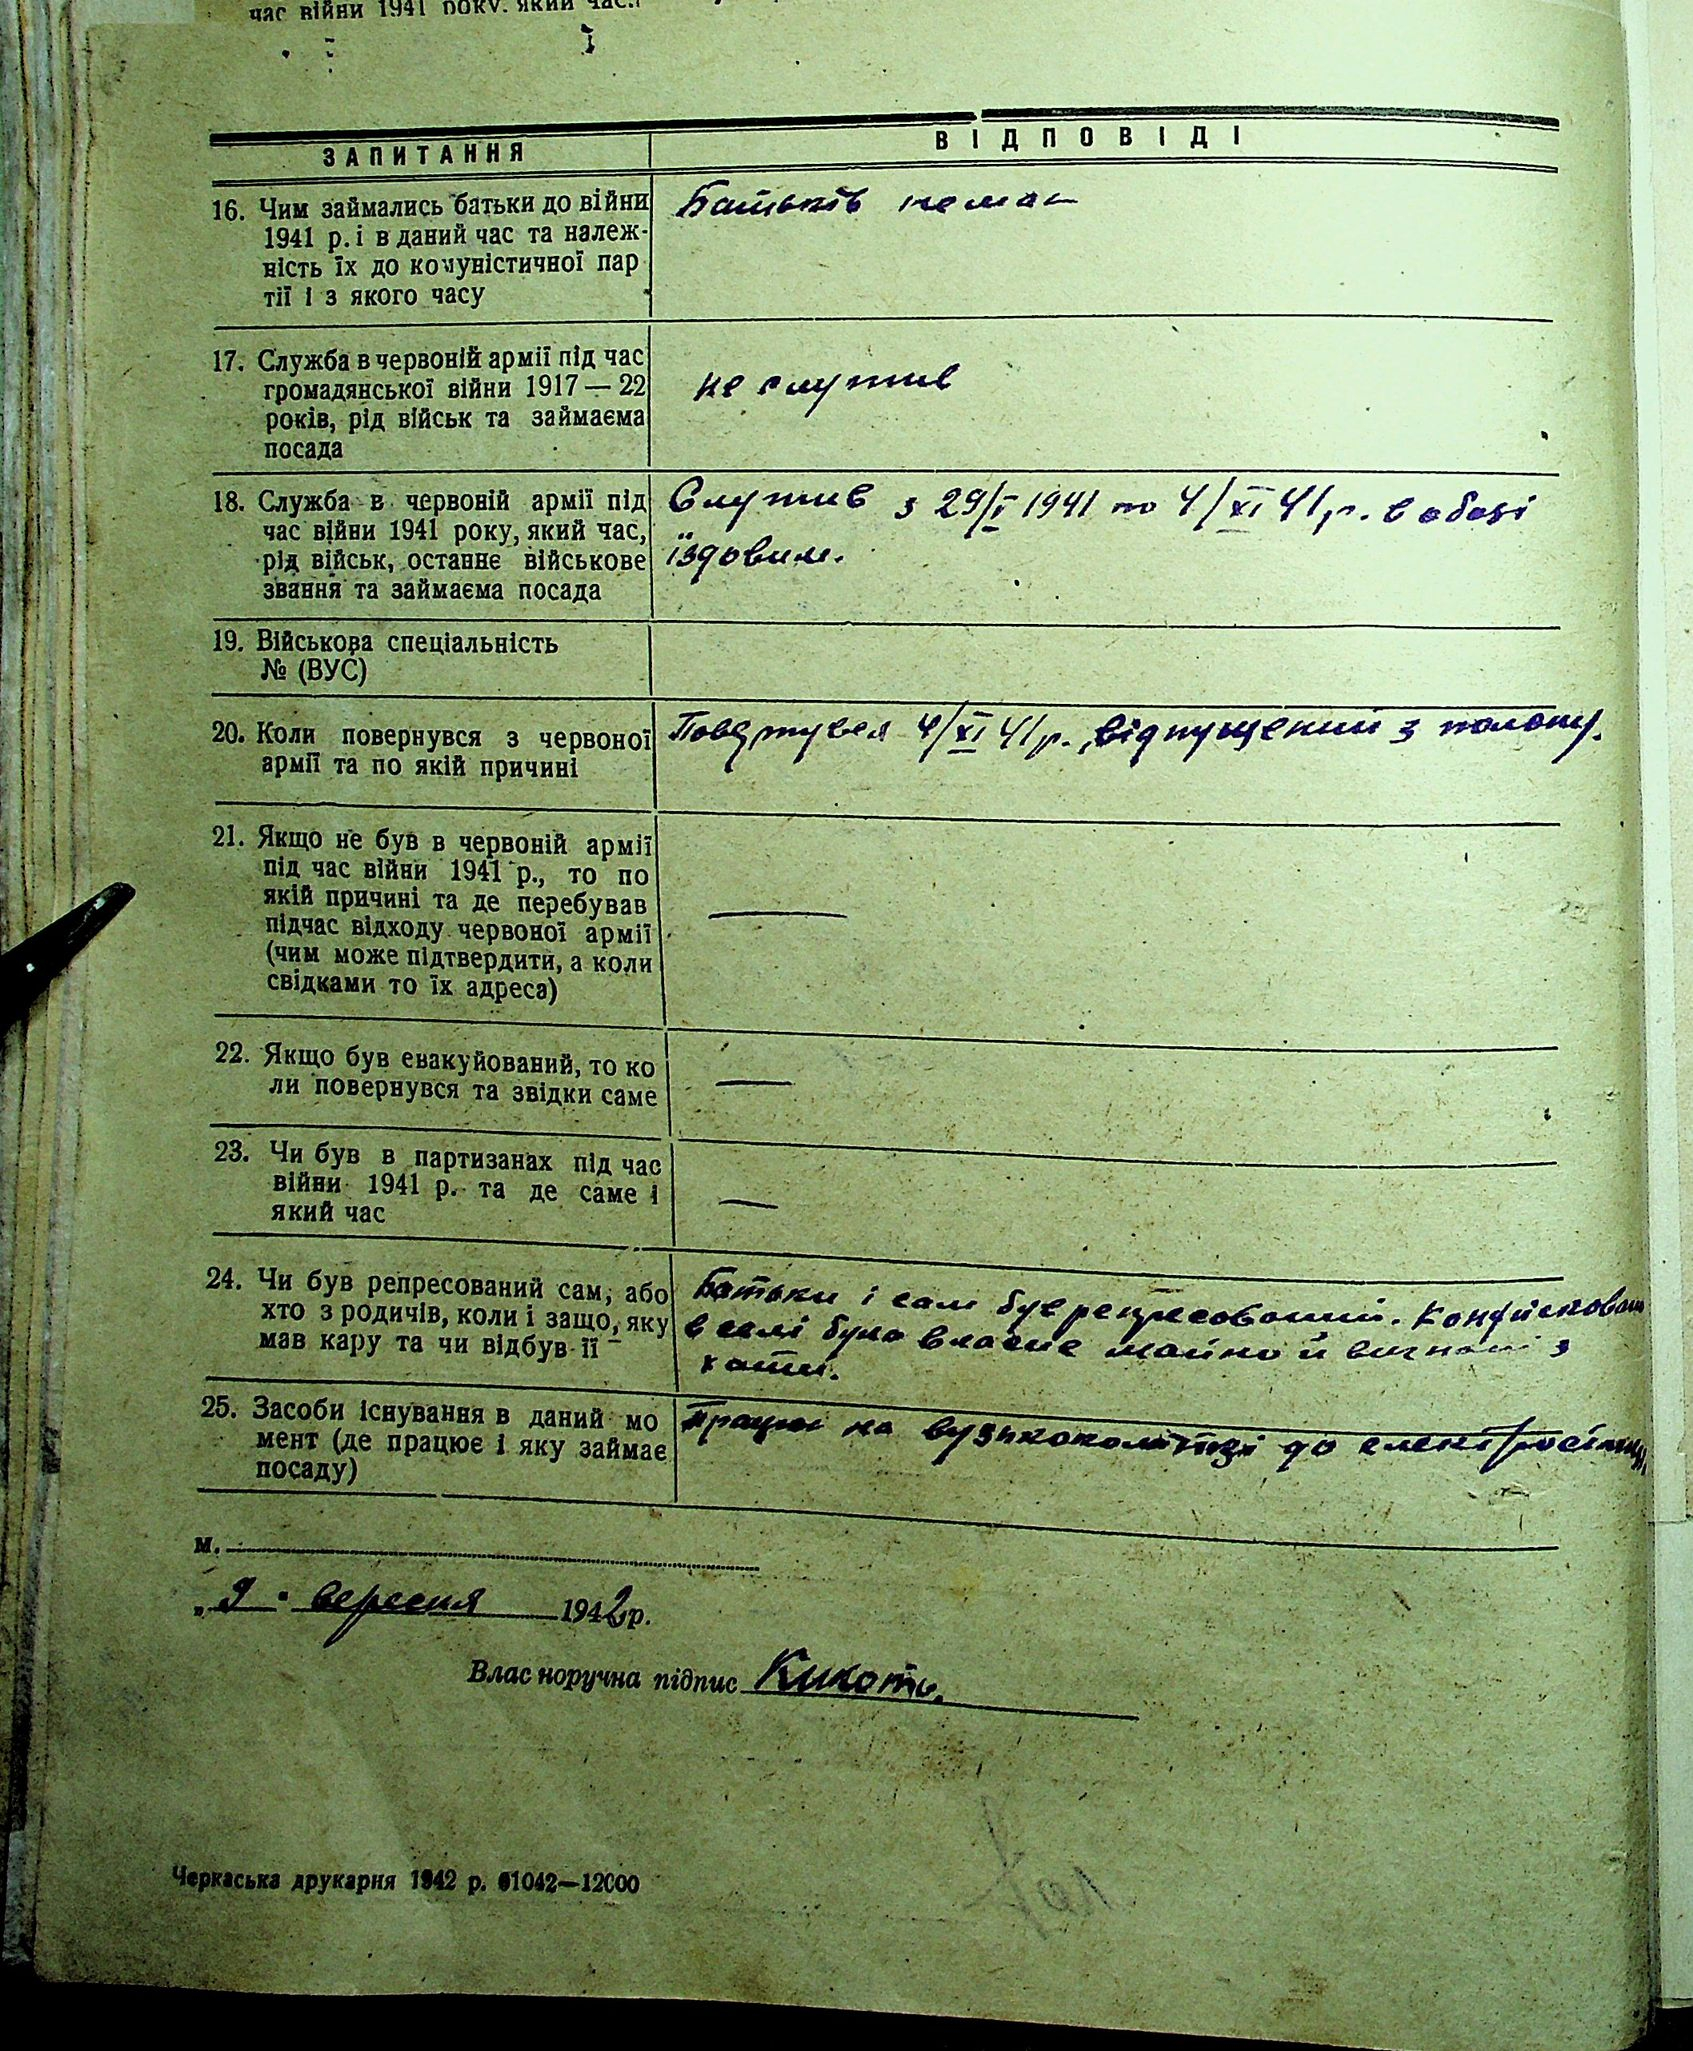 час війни 1941 року, який час.
ЗАПИТАННЯ
ВІДПОВІДІ
16. Чим займались батьки до війни
1941 р. і в даний час та належ-
ність їх до комуністичної пар
тії і з якого часу
Батьків немає
17. Служба в червоній армії під час
громадянської війни 1917 — 22
років, рід військ та займаєма
посада
не служив
18. Служба в червоній армії під
час війни 1941 року, який час,
рід військ, останнє військове
звання та займаєма посада
Служив з 1941 по 4/XI 41 р. в обозі
їздовим.
19. Військова спеціальність
№ (ВУС)
20. Коли повернувся з червоної
армії та по якій причині
Повернувся 4/XI 41 р., відпущений з полону.
21. Якщо не був в червоній армії
під час війни 1941 р., то по
якій причині та де перебував
підчас відходу червоної армії
(чим може підтвердити, а коли
свідками то їх адреса)
—
22. Якщо був евакуйований, то ко
ли повернувся та звідки саме
—
23. Чи був в партизанах під час
війни 1941 р. та де саме і
який час
—
24. Чи був репресований сам, або
хто з родичів, коли і защо, яку
мав кару та чи відбув її
Батьки і сам був репресований. Конфісковано
в селі було власне майно й вигнані з
хати.
25. Засоби існування в даний мо
мент (де працює і яку займає
посаду)
Працюю на вузькоколійці до
м.
„ 9 " вересня 1942 р.
Власноручна підпис Кикоть.
Черкаська друкарня 1942 р. 61042—12000